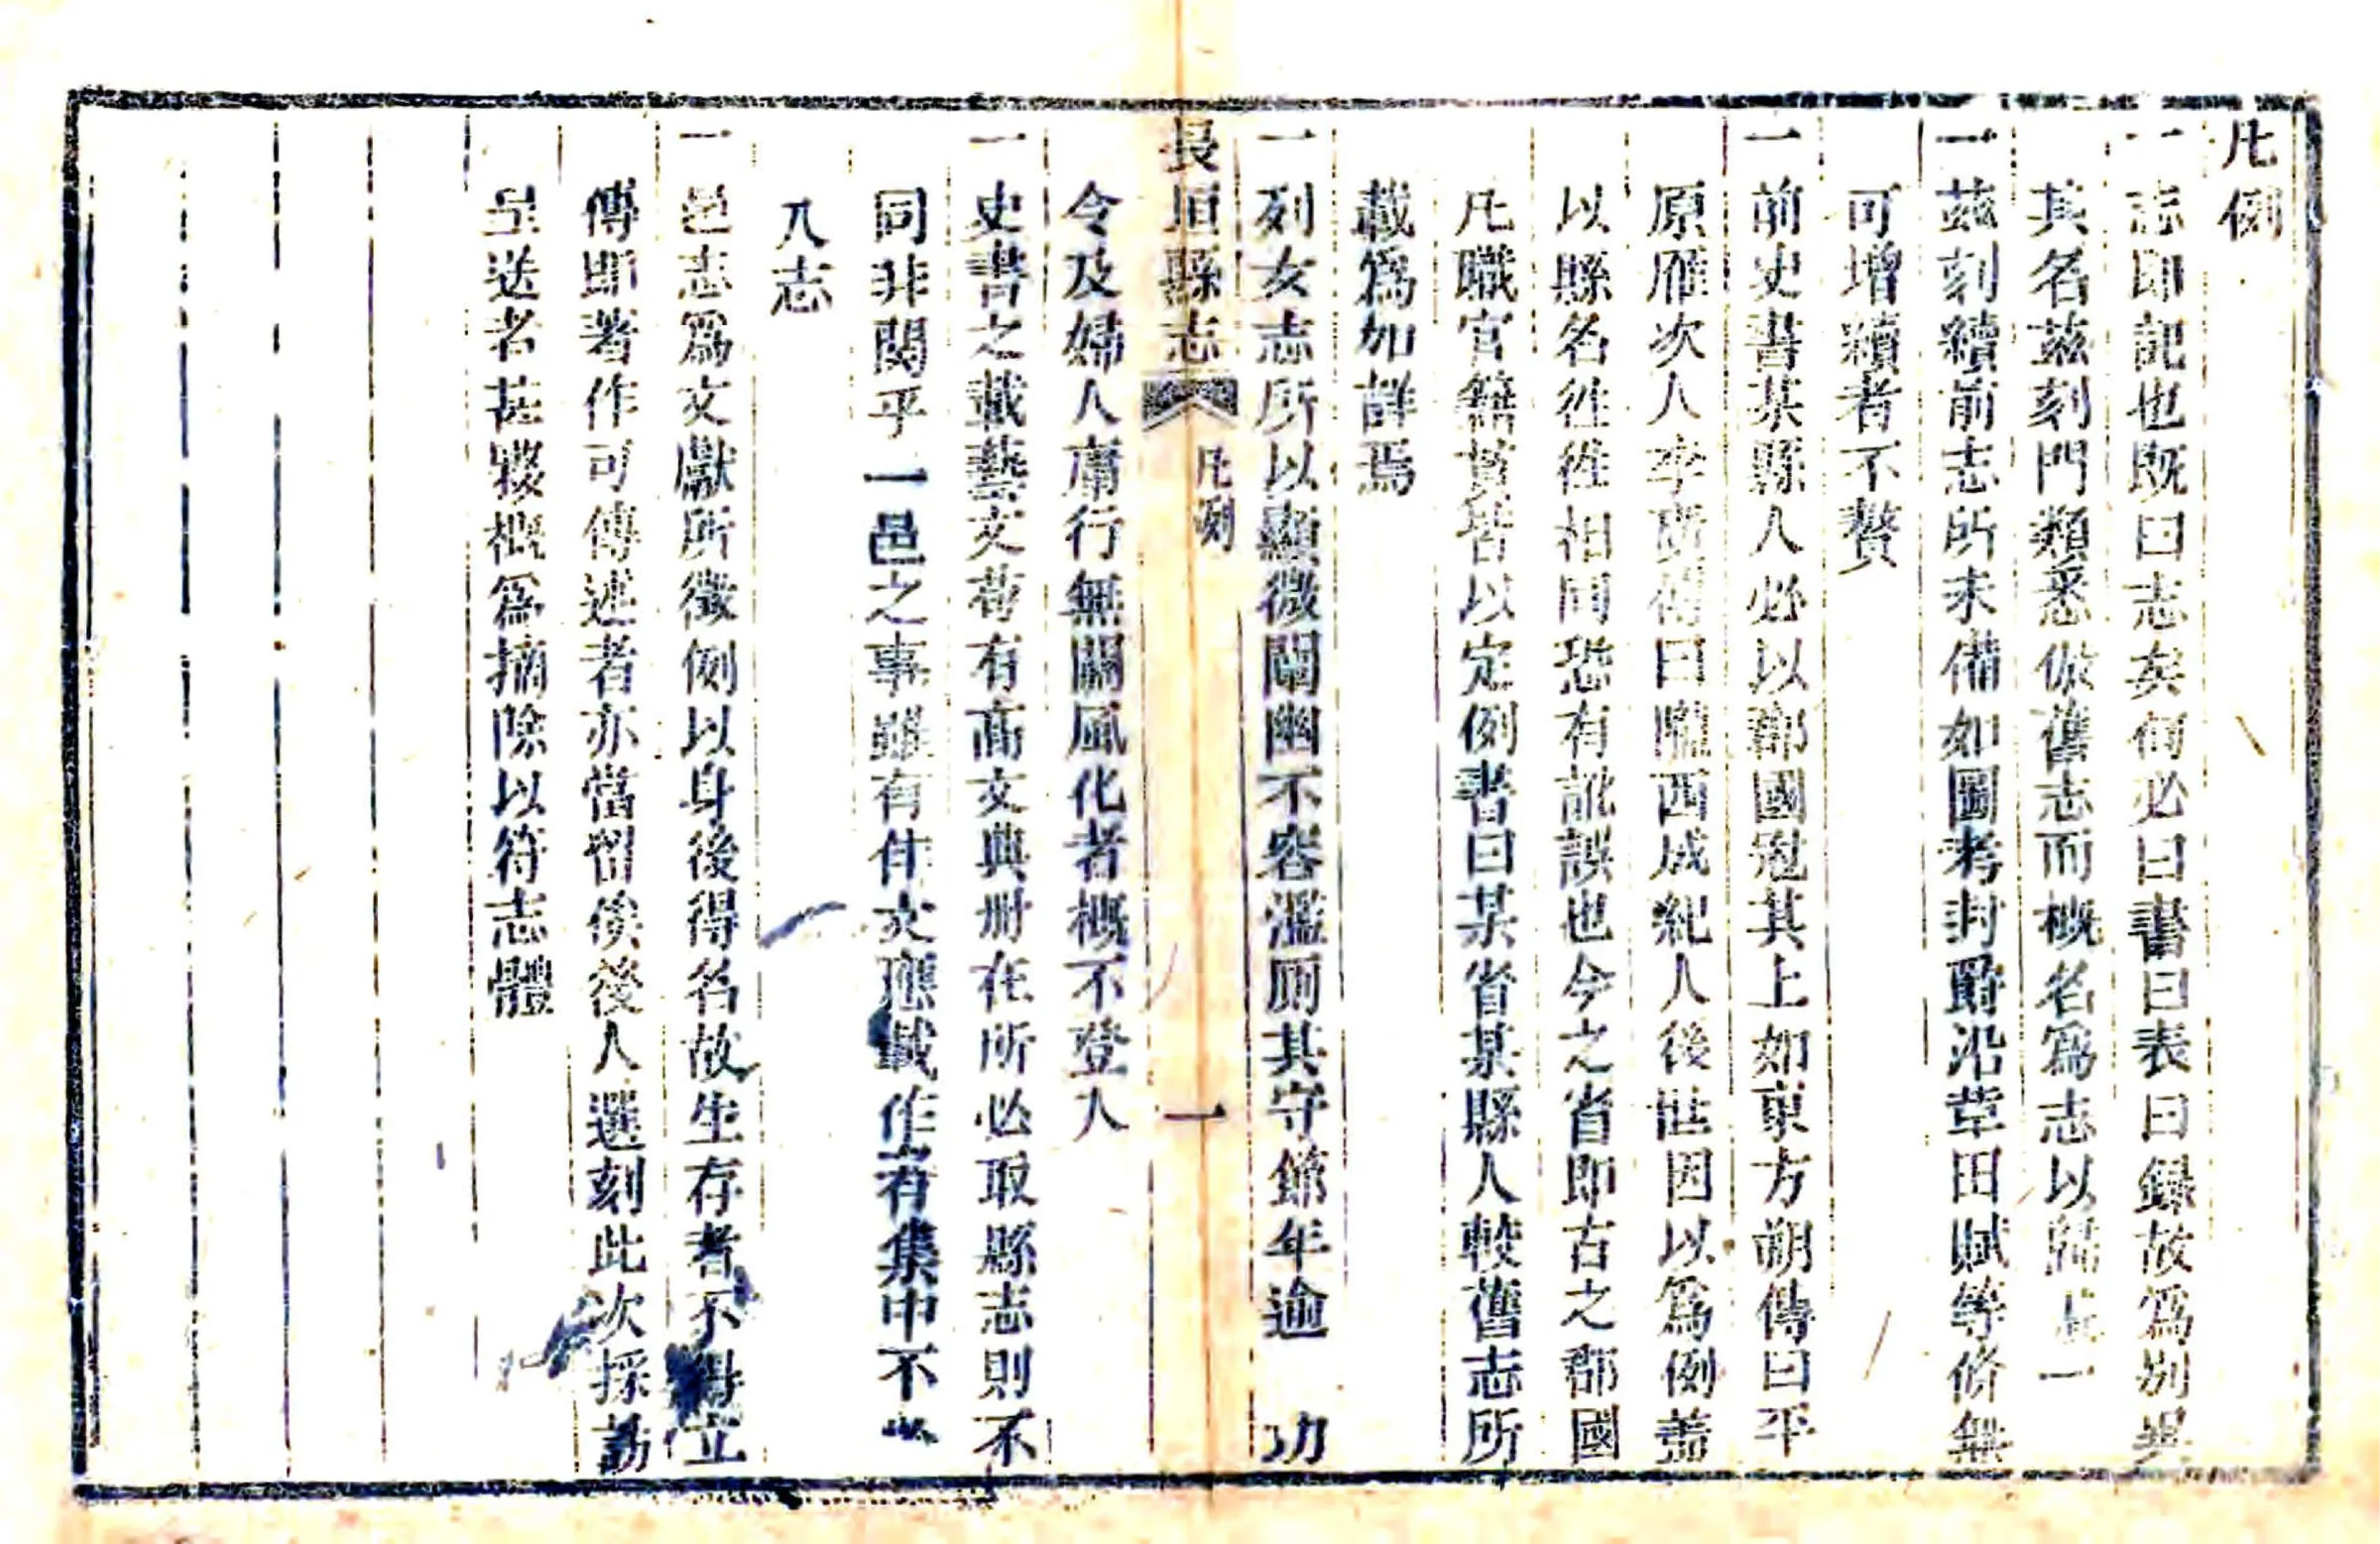 凡例
一志即記也既曰志矣何必曰書曰表曰錄故為別異
其名茲刻門類悉倣舊志而槪名為志以歸一
一茲刻續前志所未備如圖考封爵沿革田賦等條無
可增續者不贅
一前史書某縣人必以郡國冠其上如東方朔傳曰平
原厭次人李廣傳曰隴西成紀人後世因以為例蓋
以縣名徃徃相同恐有訛誤也今之省即古之郡國
凡職官籍貫皆以定例書曰某省某縣人較舊志所
載為加詳焉
一列女志所以顯微闡幽不容濫厠其守節年逾
長垣縣志 凡例 一
令及婦人庸行無關風化者槪不登入
一史書之載藝文苟有高文典冊在所必取縣志則不
同非關乎一邑之事雖有佳文應載作者集中不
入志
一邑志為文獻所徵例以身後得名故生存者不得立
傳即著作可傳述者亦當留俟後人選刻此次採訪
呈送者甚夥槪為摘除以符志體